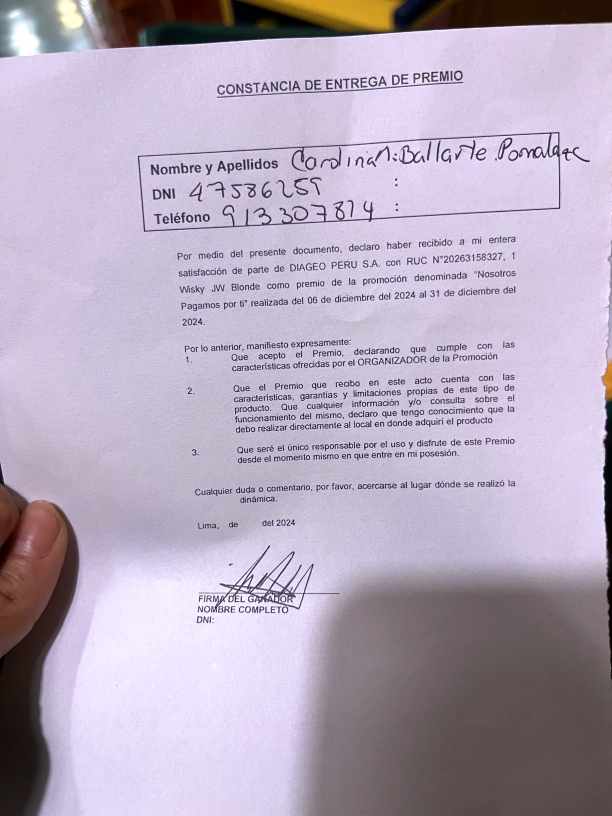 CONSTANCIA DE ENTREGA DE PREMIO
Nombre y Apellidos Ballarte
DNI 47586259 :
Teléfono 913307814 :
Por medio del presente documento, declaro haber recibido a mi entera
satisfacción de parte de DIAGEO PERU S.A. con RUC N°20263158327, 1
Wisky JW Blonde como premio de la promoción denominada "Nosotros
Pagamos por ti" realizada del 06 de diciembre del 2024 al 31 de diciembre del
2024.
Por lo anterior, manifiesto expresamente:
1. Que acepto el Premio, declarando que cumple con las
características ofrecidas por el ORGANIZADOR de la Promoción
2. Que el Premio que recibo en este acto cuenta con las
características, garantías y limitaciones propias de este tipo de
producto. Que cualquier información y/o consulta sobre el
funcionamiento del mismo, declaro que tengo conocimiento que la
debo realizar directamente al local en donde adquirí el producto
3. Que seré el único responsable por el uso y disfrute de este Premio
desde el momento mismo en que entre en mi posesión.
Cualquier duda o comentario, por favor, acercarse al lugar dónde se realizó la
dinámica.
Lima, de del 2024
FIRMA DEL GANADOR
NOMBRE COMPLETO
DNI: